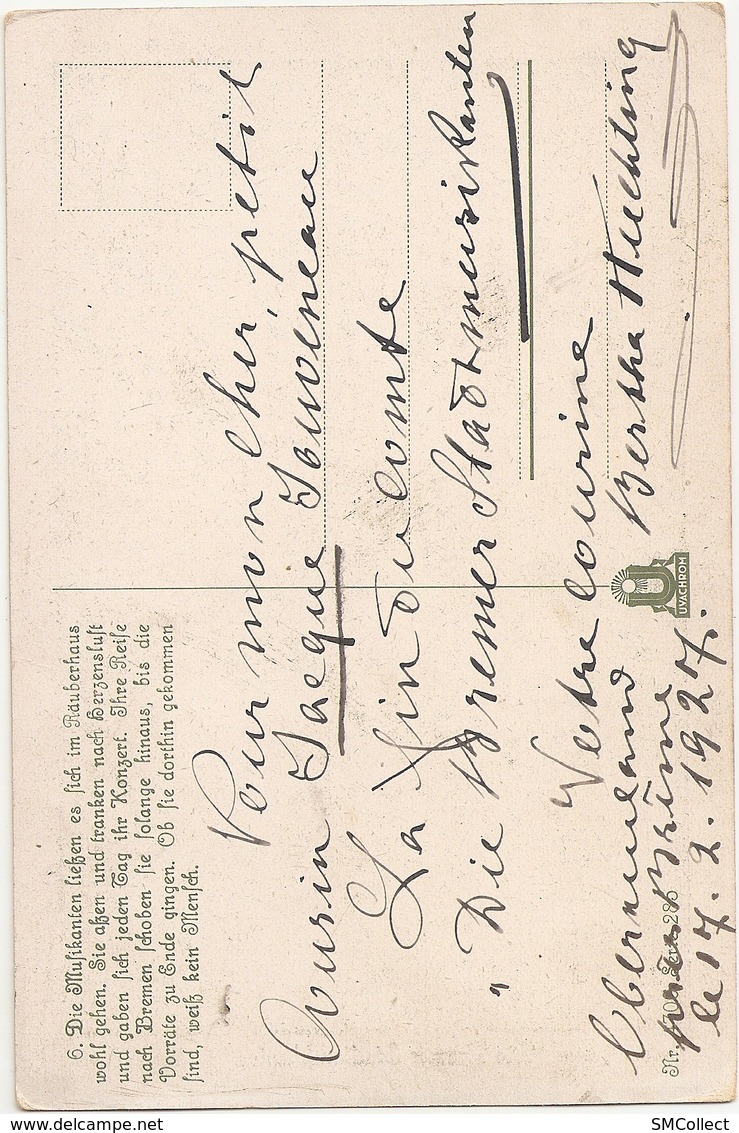 6. Die Musikanten ließen es sich im Räuberhaus
wohl gehen. Sie aßen und tranken nach Herzenslust
und gaben sich jeden Tag ihr Konzert. Ihre Reise
nach Bremen schoben sie solange hinaus, bis die
Vorräte zu Ende gingen. Ob sie dorthin gekommen
sind, weiß kein Mensch.
Pour mon cher, petit
Cousin Jacque Jouveneau
La fin du comte
"Die Bremer Stadtmusikanten
Votre cousine
Bertha Huchting
Oberneuland
près Brême
le 17. 2. 1927.
Nr. Serie 286
UVACHROM
SMCollect